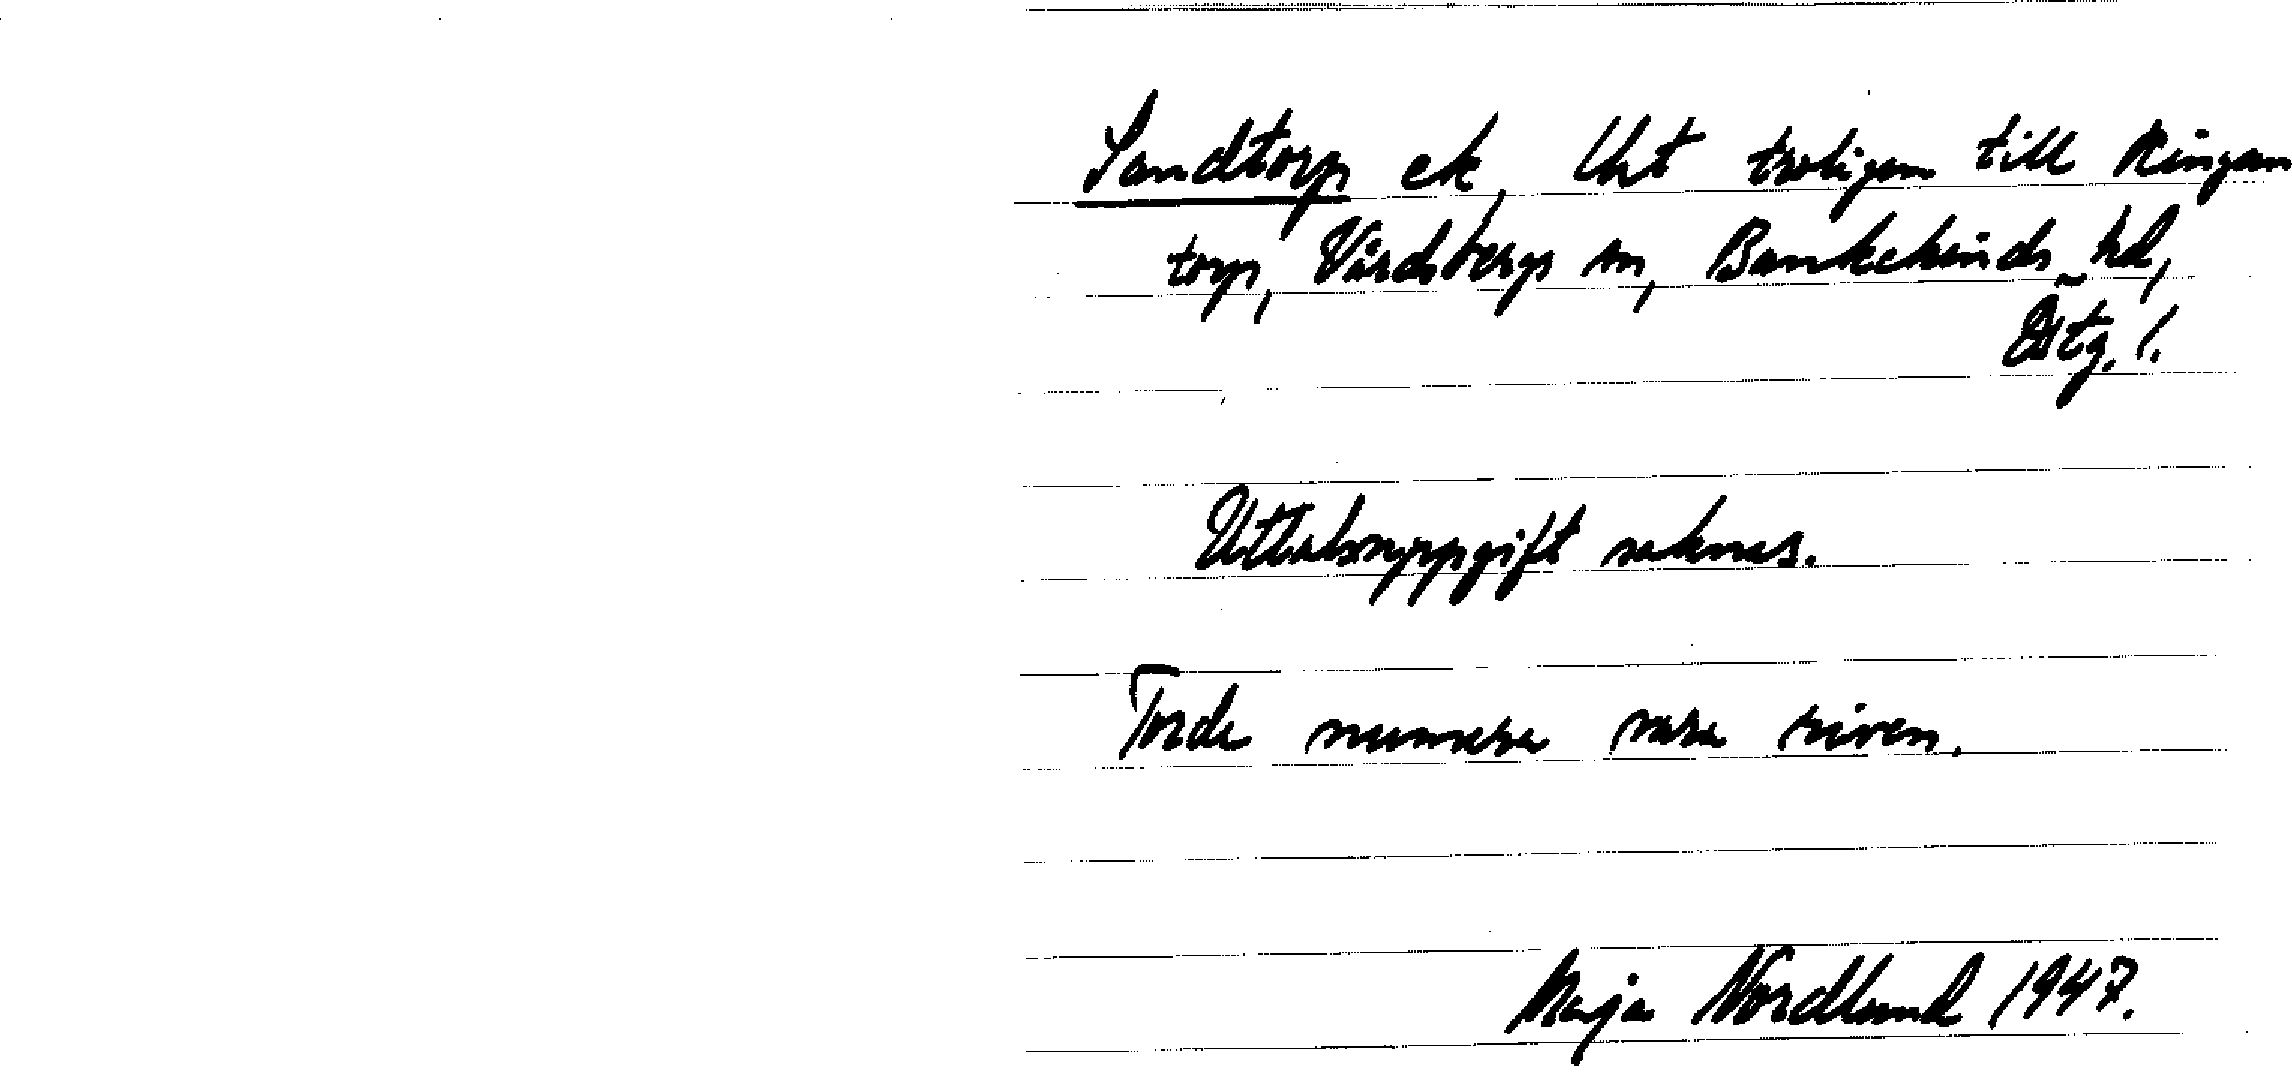 Sandtorp ek, Uht troligen till Ringan
torp, Vårdsbergs sn, Bankekinds hd,
Östg. l.
Uttalsuppgift saknas.
Torde numera vara riven.
Maja Nordlund 1947.